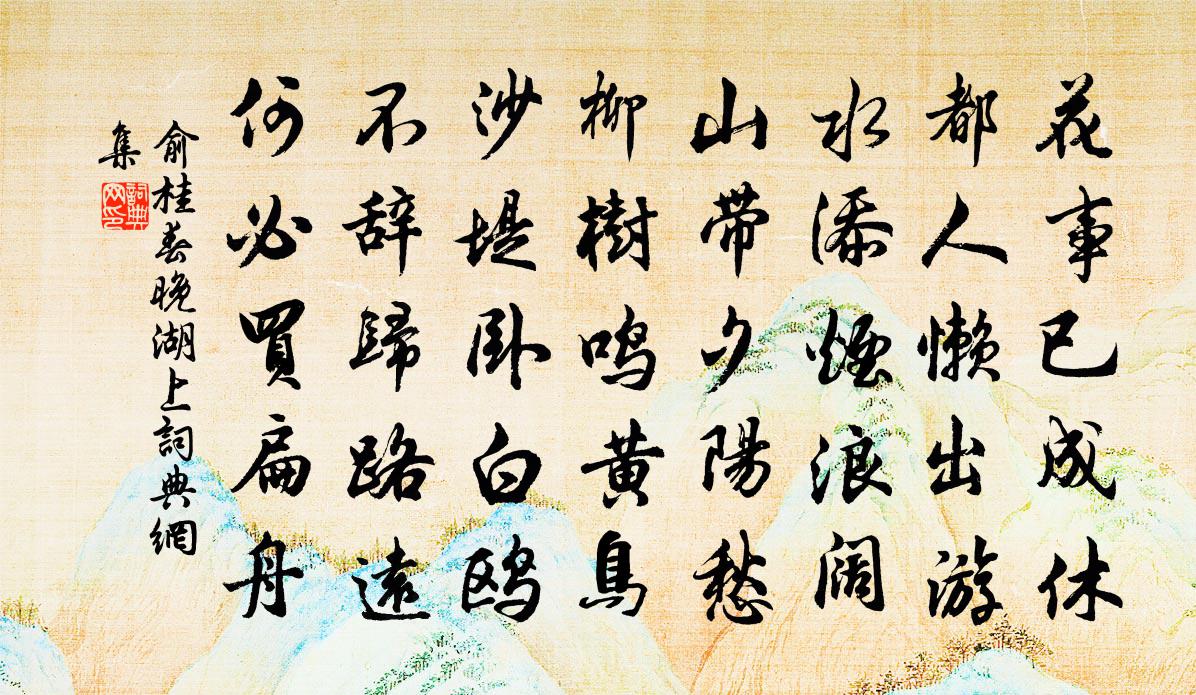 花事已成休
都人懒出游
水添烟浪阔
山带夕陽愁
柳樹鸣黄鳥
沙堤卧白鸥
不辞歸路遠
何必買扁舟
俞桂春晚湖上詞典網
集
詞典
网印